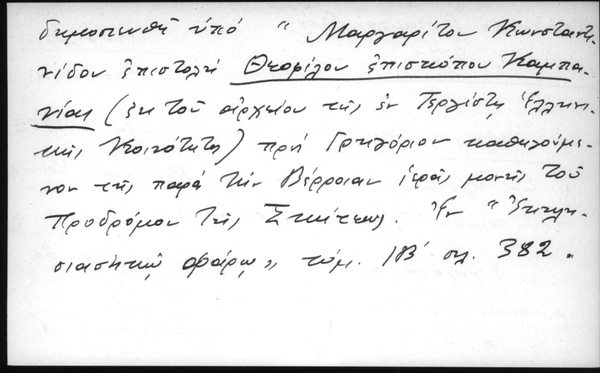 δημοσιευθῆ ὑπό " Μαργαρίτου Κωνσταντι-
νίδου ἐπιστολή Θεοφίλου ἐπισκόπου Καμπα-
νίας (ἐκ τοῦ ἀρχείου τῆς ἐν Τεργέστῃ Ἑλληνι-
κῆς Κοινότητος) πρός Γρηγόριον καθηγούμε-
νον τῆς παρά τήν Βέρροιαν ἱερᾶς μονῆς τοῦ
Προδρόμου τῆς Σκήτεως. Ἐν " Ἐκκλη-
σιαστικῷ φάρῳ„ τόμ. ΙΒ' σελ. 382.